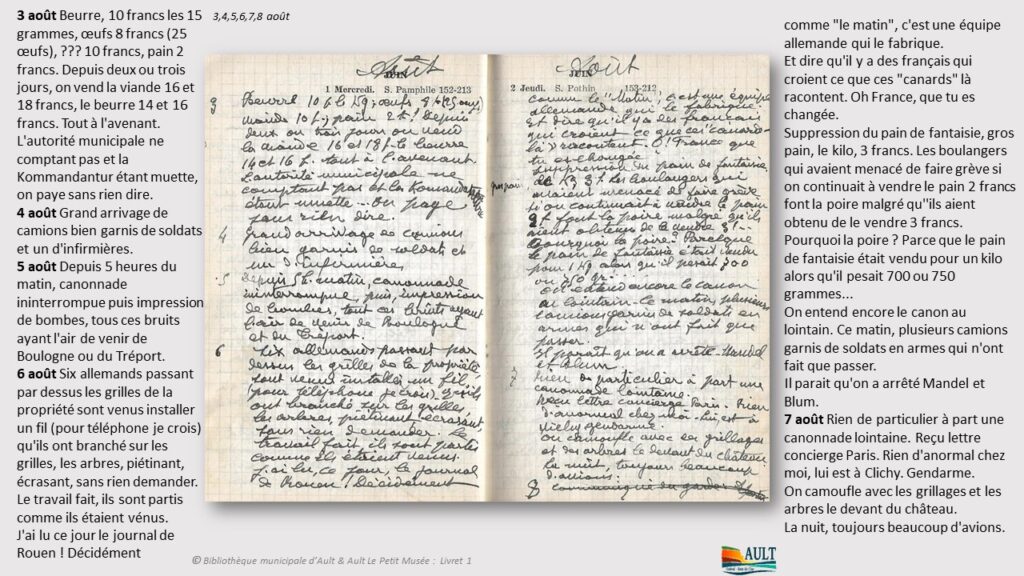 3 août Beurre, 10 francs les 15
grammes, œufs 8 francs (25
œufs), ??? 10 francs, pain 2
francs. Depuis deux ou trois
jours, on vend la viande 16 et
18 francs, le beurre 14 et 16
francs. Tout à l'avenant.
L'autorité municipale ne
comptant pas et la
Kommandantur étant muette,
on paye sans rien dire.
4 août Grand arrivage de
camions bien garnis de soldats
et un d'infirmières.
5 août Depuis 5 heures du
matin, canonnade
ininterrompue puis impression
de bombes, tous ces bruits
ayant l'air de venir de
Boulogne ou du Tréport.
6 août Six allemands passant
par dessus les grilles de la
propriété sont venus installer
un fil (pour téléphone je crois)
qu'ils ont branché sur les
grilles, les arbres, piétinant,
écrasant, sans rien demander.
Le travail fait, ils sont partis
comme ils étaient vénus.
J'ai lu ce jour le journal de
Rouen ! Décidément
3,4,5,6,7,8 août
Août
JUIN
1 Mercredi. S. Pamphile 152-213
3 Beurre 10 f. le ; œufs 8 f (25 œufs)
10 f.; pain 2 f. Depuis
deux ou trois jours on vend
la viande 16 et 18 f. le beurre
14 et 16 f. tout à l'avenant.
L'autorité municipale ne
comptant pas et la
étant muette... on paye
sans rien dire.
4 Grand arrivage de camions
bien garnis de soldats et
un d'infirmières
5 Depuis 5 h. matin, canonnade
ininterrompue, puis, impression
de bombes, tout ces bruits ayant
l'air de venir de Boulogne
et du Tréport.
6 Six allemands passant par
dessus les grilles de la propriété
sont venus installer un fil
(pour téléphone je crois) qu'ils
ont branché sur les grilles,
les arbres, piétinant, écrasant,
sans rien demander. Le
travail fait, ils sont partis
comme ils étaient venus.
J'ai lu, ce jour, le journal
de Rouen ! Décidément
Août
JUIN
2 Jeudi. S. Pothin 153-212
comme le "Matin", c'est une équipe
allemande qui le fabrique.
Et dire qu'il y a des français
qui croient ce que ces "canards"
là racontent. O ! France que
tu es changée.
Suppression du pain de fantaisie,
gros pain, le kg 3 f. Les boulangers qui
avaient menacé de faire grève
si on continuait à vendre le pain
2 f. font la poire malgré qu'ils
aient obtenus de le vendre 3 f...
Pourquoi la poire ? Parce que
le pain de fantaisie était vendu
pour 1 kg alors qu'il pesait 700
ou 750 gr...
On entend encore le canon
au lointain. Ce matin, plusieurs
camions garnis de soldats en
armes qui n'ont fait que
passer.
Il parait qu'on a arrêté Mandel
et Blum.
7 Rien de particulier à part une
canonnade lointaine.
Reçu lettre concierge Paris. Rien
d'anormal chez moi. Lui est à
Clichy gendarme.
On camoufle avec les grillages
et des arbres le devant du château
La nuit, toujours beaucoup
d'avions.
8
comme "le matin", c'est une équipe
allemande qui le fabrique.
Et dire qu'il y a des français qui
croient ce que ces "canards" là
racontent. Oh France, que tu es
changée.
Suppression du pain de fantaisie, gros
pain, le kilo, 3 francs. Les boulangers
qui avaient menacé de faire grève si
on continuait à vendre le pain 2 francs
font la poire malgré qu''ils aient
obtenu de le vendre 3 francs.
Pourquoi la poire ? Parce que le pain
de fantaisie était vendu pour un kilo
alors qu'il pesait 700 ou 750
grammes...
On entend encore le canon au
lointain. Ce matin, plusieurs camions
garnis de soldats en armes qui n'ont
fait que passer.
Il parait qu'on a arrêté Mandel et
Blum.
7 août Rien de particulier à part une
canonnade lointaine. Reçu lettre
concierge Paris. Rien d'anormal chez
moi, lui est à Clichy. Gendarme.
On camoufle avec les grillages et les
arbres le devant du château.
La nuit, toujours beaucoup d'avions.
© Bibliothèque municipale d'Ault & Ault Le Petit Musée : Livret 1
AULT